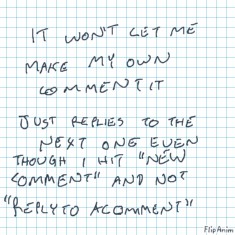 IT WON'T LET ME
MAKE MY OWN
COMMENT IT
JUST REPLIES TO THE
NEXT ONE EVEN
THOUGH I HIT "NEW
COMMENT" AND NOT
"REPLY TO A COMMENT"
FlipAnim